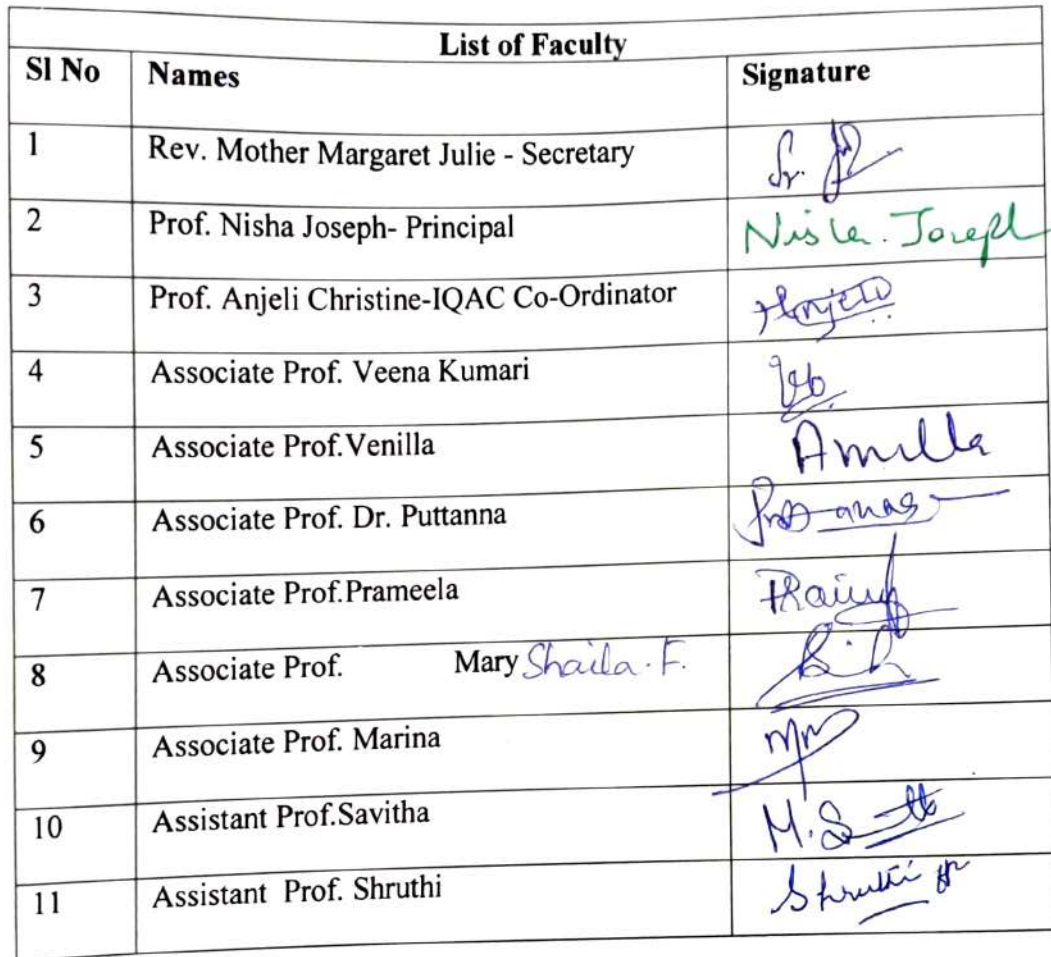 List of Faculty
Sl No Names Signature
1 Rev. Mother Margaret Julie - Secretary Sr.
2 Prof. Nisha Joseph- Principal Nisha. Joseph
3 Prof. Anjeli Christine-IQAC Co-Ordinator
4 Associate Prof. Veena Kumari
5 Associate Prof.Venilla
6 Associate Prof. Dr. Puttanna
7 Associate Prof.Prameela
8 Associate Prof. Mary Shaila. F.
9 Associate Prof. Marina
10 Assistant Prof.Savitha
11 Assistant Prof. Shruthi Shruthi